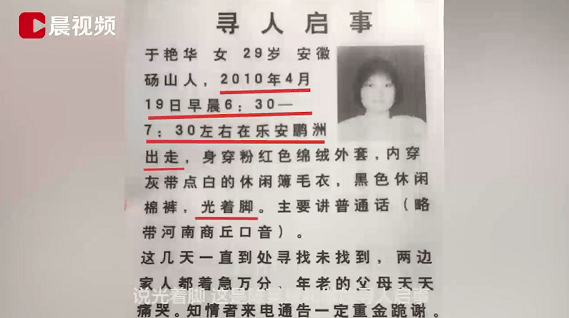 晨视频
寻人启事
于艳华 女 29岁 安徽
砀山人，2010年4月
19日早晨6：30—
7：30左右在乐安鹏洲
出走，身穿粉红色绵绒外套，内穿
灰带点白的休闲薄毛衣，黑色休闲
棉裤，光着脚。主要讲普通话（略
带河南商丘口音）。
这几天一直到处寻找未找到，两边
家人都着急万分、年老的父母天天
痛哭。知情者来电通告一定重金跪谢。